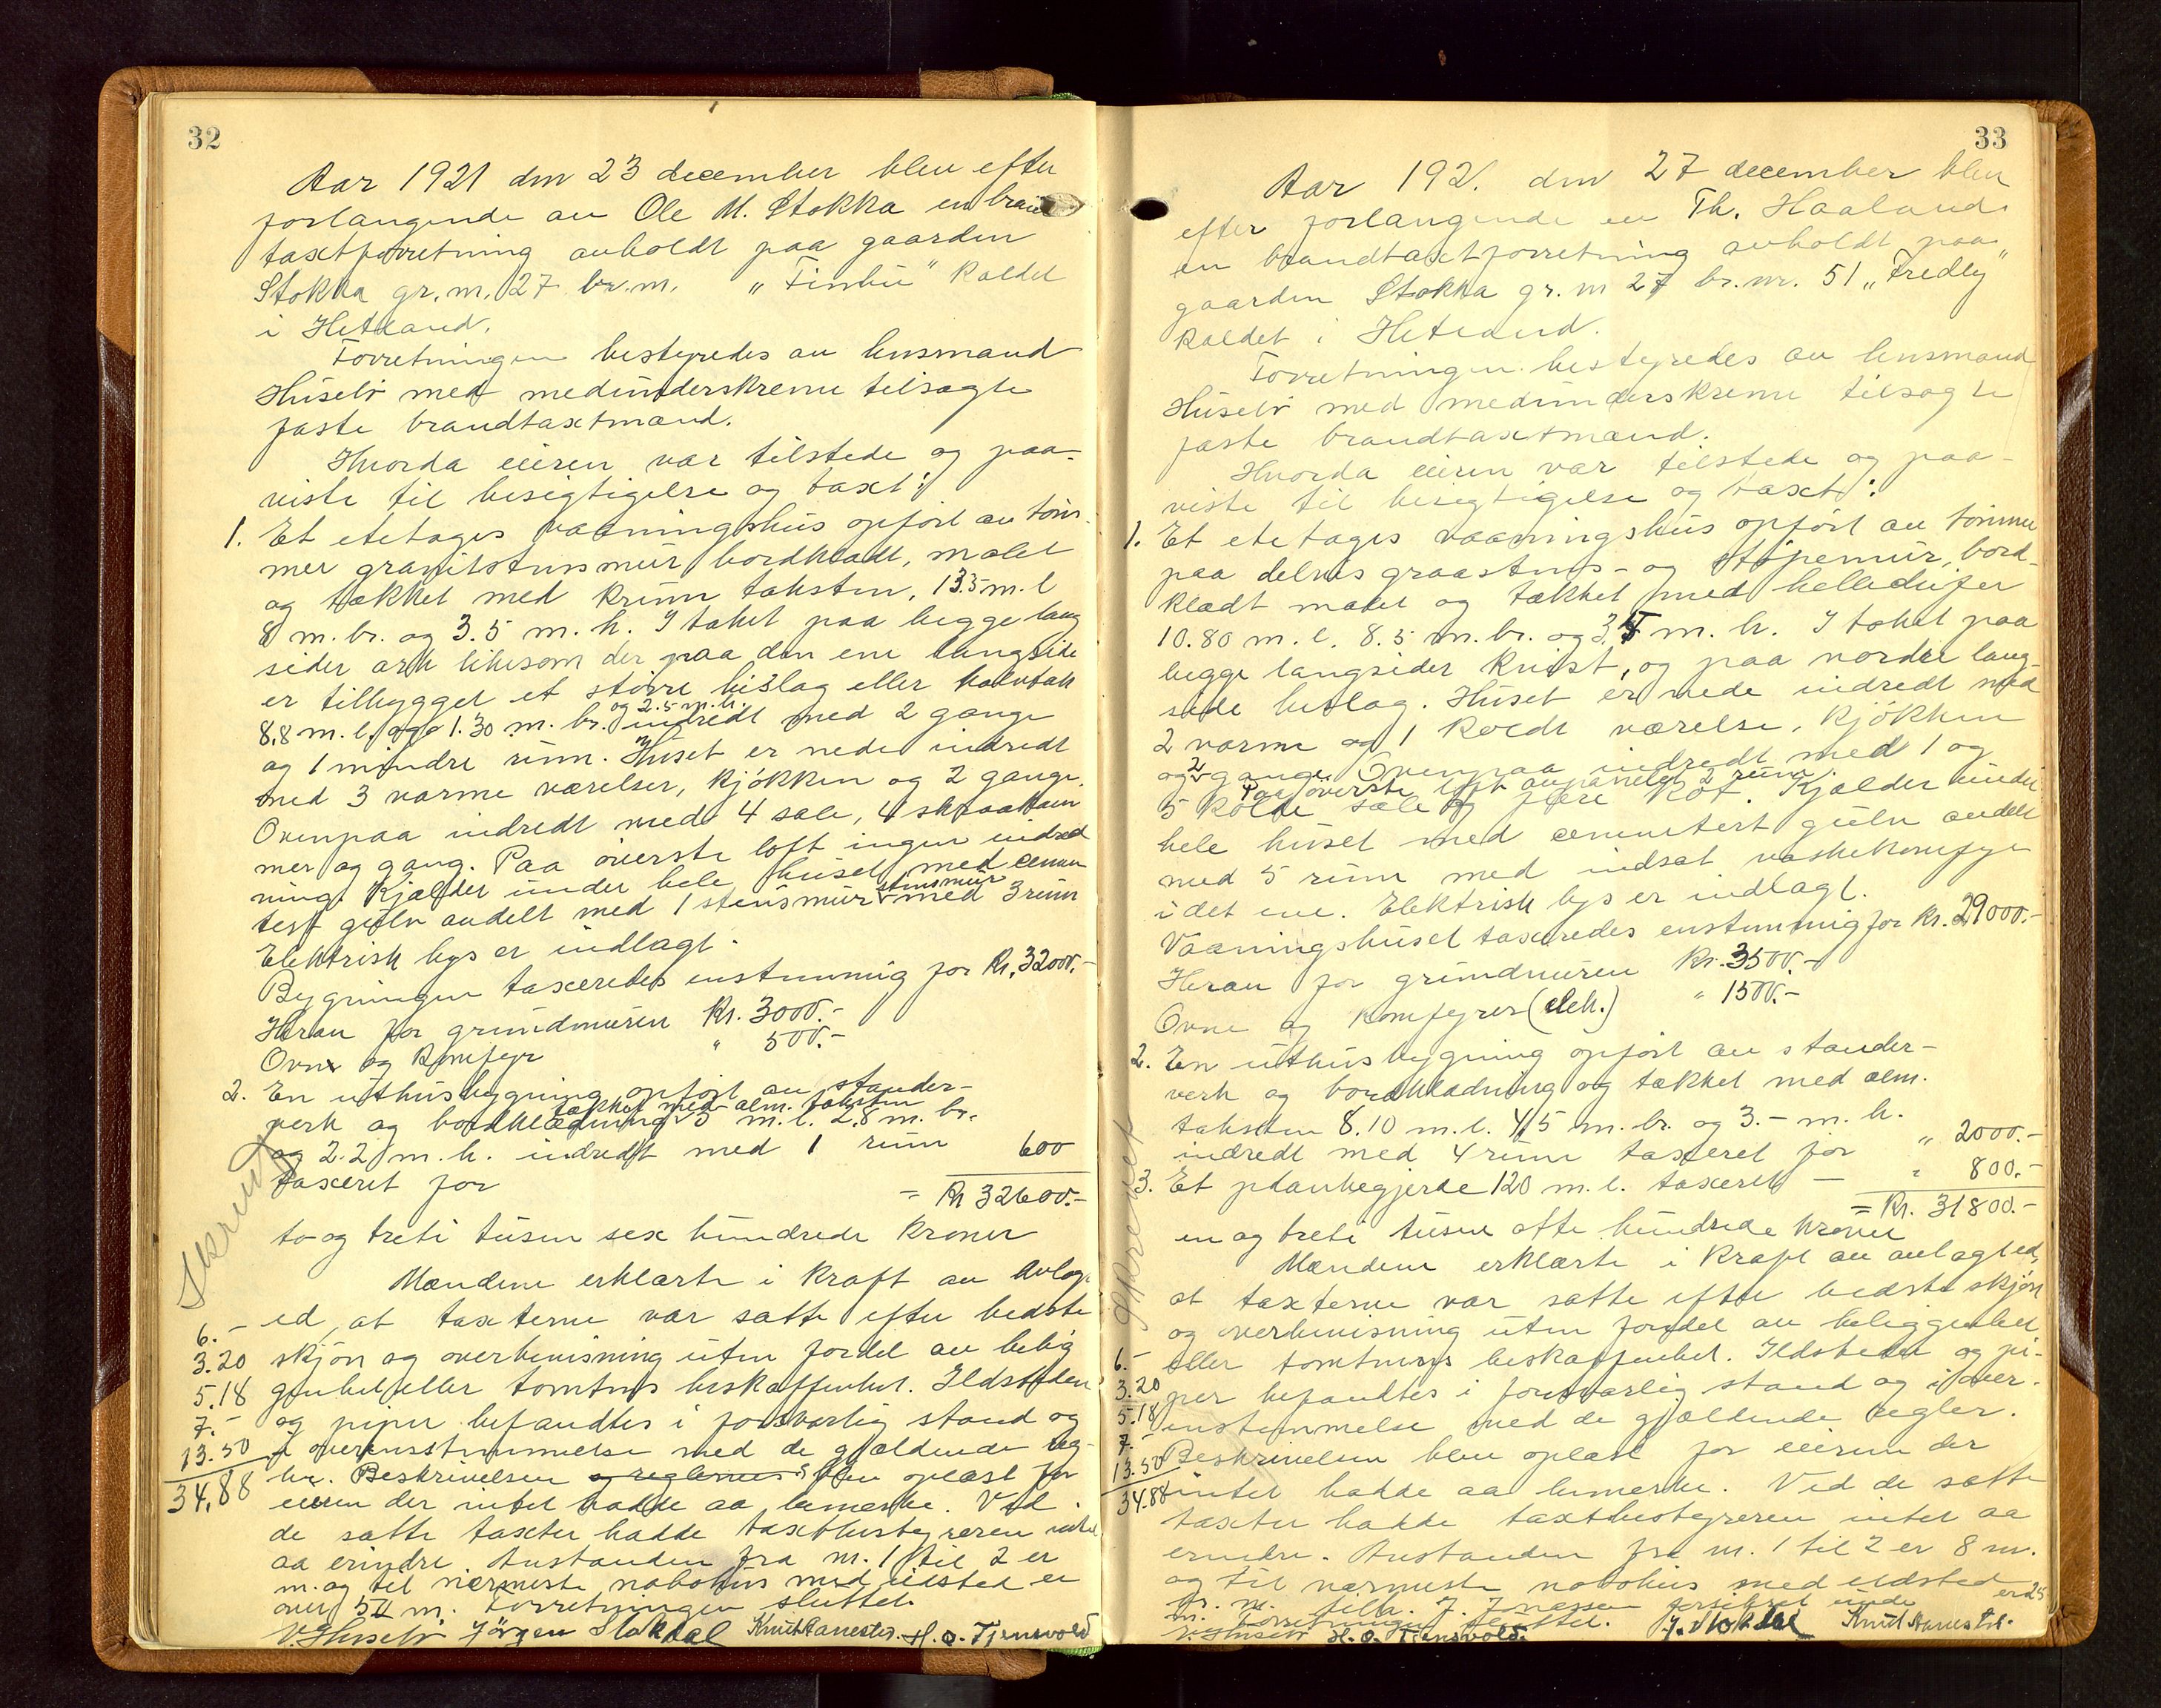 32
Aar 1921 den 23 december blev efter
forlangende av Ole M. Stokka en brand
taxtforretning avholdt paa gaarden
Stokka gr.nr. 27 br.nr. „Finbu" kaldet
i Hetland.
Forretningen bestyredes av lensmand
Husebø med medunderskrevne tilsagte
faste brandtaxtmænd.
Hvorda eieren var tilstede og paa-
viste til besigtigelse og taxt:
1. Et etetages vaaningshus opført av tøm-
mer granitstensmur bordklædt, malet
og tækket med krum taksten, 13.5 m. l
8 m. br. og 3.5 m. h. I taket paa begge lang
sider ark likesom der paa den ene langside
er tilbygget et større bislag eller halvtak
og 2.5 m.h.
8.8 m. l. og 1.30 m. br. indredt med 2 gange
og 1 mindre rum. Huset er nede indredt
med 3 varme værelser, kjøkken og 2 gange.
Ovenpaa indredt med 4 sale, 4 skraakam
mer og gang. Paa øverste loft ingen indred
ning. Kjælder under hele huset med cemen
tert gulv avdelt med 1 stensmur med 3 rum
Elektrisk lys er indlagt.
Bygningen taxeredes enstemmig for Kr. 32000.-
Herav for grundmuren Kr. 3000.-
Ovne og komfyr " 500.-
2. En uthusbygning opført av stander-
tækket med alm. taksten
verk og bordklædning 3 m. l. 2.8 m. br.
og 2.2 m. h. indredt med 1 rum
taxeret for 600
= Kr 32600.-
to og treti tusen sex hundrede kroner
Utskrevet
Mændene erklærte i kraft av avlagt
ed, at taxterne var satte efter bedste
6.-
3.20 skjøn og overbevisning uten fordel av belig
5.18 genhet eller tomtens beskaffenhet. Ildsteder
7.- og piper befandtes i forsvarlig stand og
13.50 i overensstemmelse med de gjældende reg-
34.88 ler. Beskrivelsen og reglerne blev oplæst for
eieren der intet hadde aa bemerke. Ved
de satte taxter hadde taxtbestyreren intet
aa erindre. Avstanden fra nr. 1 til 2 er
m. og til nærmeste nabohus med ildsted er
over 50 m. Forretningen sluttet.
V. Husebø Jørgen Stokdal Knut Aanestad. H. O. Tjensvold
33
Aar 1921. den 27 december blev
efter forlangende av Th. Haaland
en brandtaxtforretning avholdt paa
gaarden Stokka gr. nr 27 br. nr. 51 „Fredly"
kaldet i Hetland.
Forretningen bestyredes av lensmand
Husebø med medunderskrevne tilsagte
faste brandtaxtmænd.
Hvorda eieren var tilstede og paa-
viste til besigtigelse og taxt:
1. Et etetages vaaningshus opført av tømmer
paa delvis graastens- og støpemur, bord-
klædt malet og tækket med helleskifer
10.80 m. l. 8.5 m. br. og 3.5 m. h. I taket paa
begge langsider kvist, og paa nordre lang-
side bislag. Huset er nede indredt med
2 varme og 1 koldt værelse, kjøkken
og 2 gange. Ovenpaa indredt med 1 og
Paa øverste loft avpanelet 2 rum.
5 kolde sale og flere kot. Kjælder under
hele huset med cementert gulv avdelt
med 5 rum med indsat vaskekomfyr
i det ene. Elektrisk lys er indlagt.
Vaaningshuset taxeredes enstemmig for Kr. 29000.-
Herav for grundmuren Kr. 3500.-
Ovne og komfyrer (elek.) " 1500.-
2. En uthusbygning opført av stander-
verk og bordklædning og tækket med alm.
taksten 8.10 m. l. 4.5 m. br. og 3.- m. h.
indredt med 4 rum taxeret for " 2000.-
3. Et plankegjerde 120 m. l. taxeret - " 800.-
= Kr. 31800.-
en og treti tusen otte hundrede kroner
Utskrevet
Mændene erklærte i kraft av avlagt ed,
at taxterne var satte efter bedste skjøn
og overbevisning uten fordel av beliggenhet
6.- eller tomtens beskaffenhet. Ildsteder og pi-
3.20 per befandtes i forsvarlig stand og i over-
5.18 enstemmelse med de gjældende regler.
7.-
13.50 Beskrivelsen blev oplæst for eieren der
34.88 intet hadde aa bemerke. Ved de satte
taxter hadde taxtbestyreren intet aa
erindre. Avstanden fra nr. 1 til 2 er 8 m.
og til nærmeste nabohus med ildsted er 25
m. Forretningen sluttet.
V. Husebø H. O. Tjensvold. J. Stokdal Knut Aanestad.